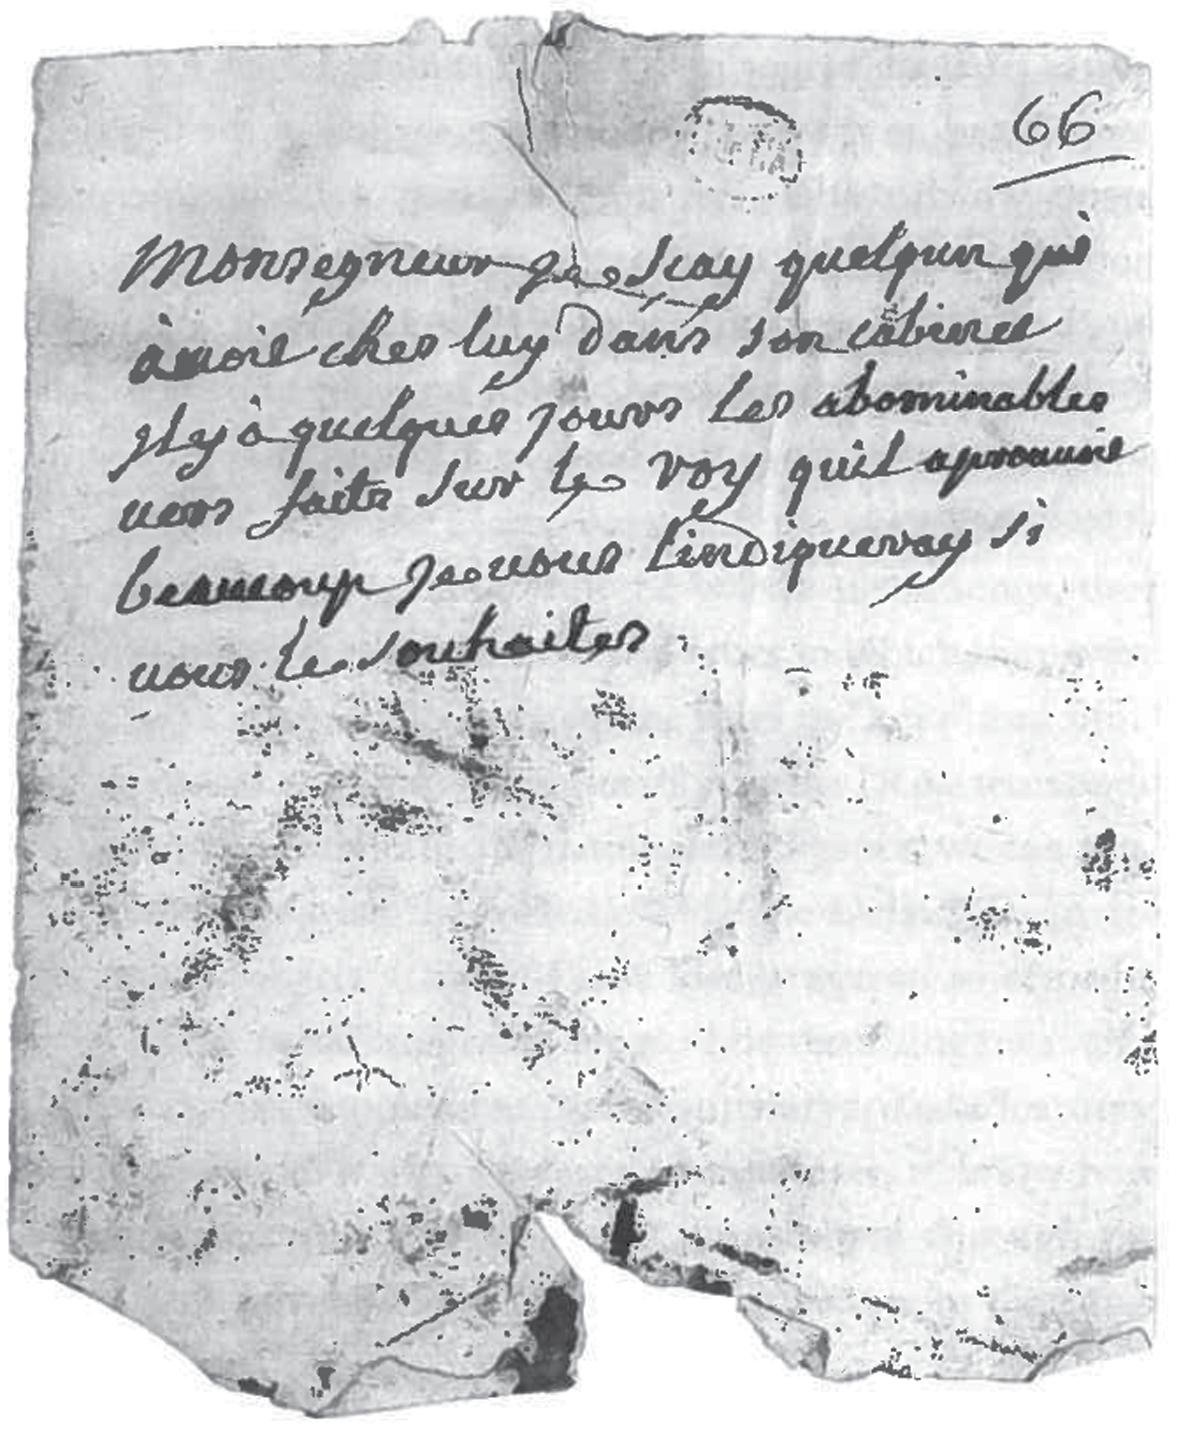 66
Monsegneur je scay quelqun qui
avoit ches luy dans son cabinet
jl y à quelques jours les abominables
vers faits sur le roy quil
beaucoup je vous lindiqueray si
vous le souhaites